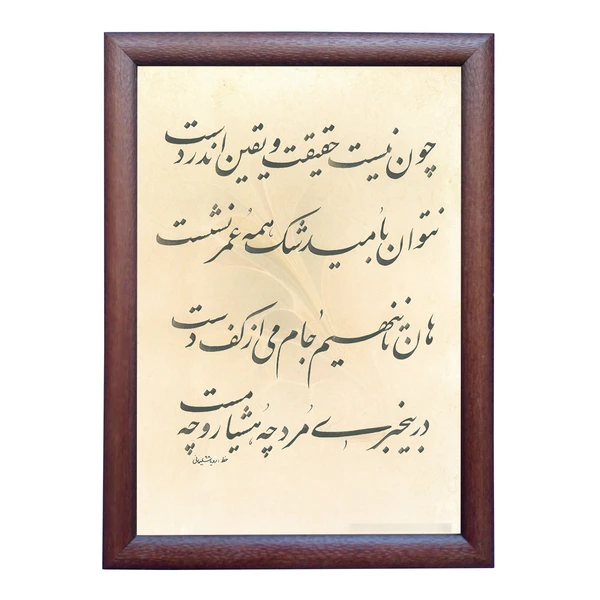 چون نیست حقیقت و یقین اندر دست
نتوان بامید شک همه عمر نشست
هان تا ننهیم جام می از کف دست
در بیخبری مرد چه هشیار و چه مست
خط: